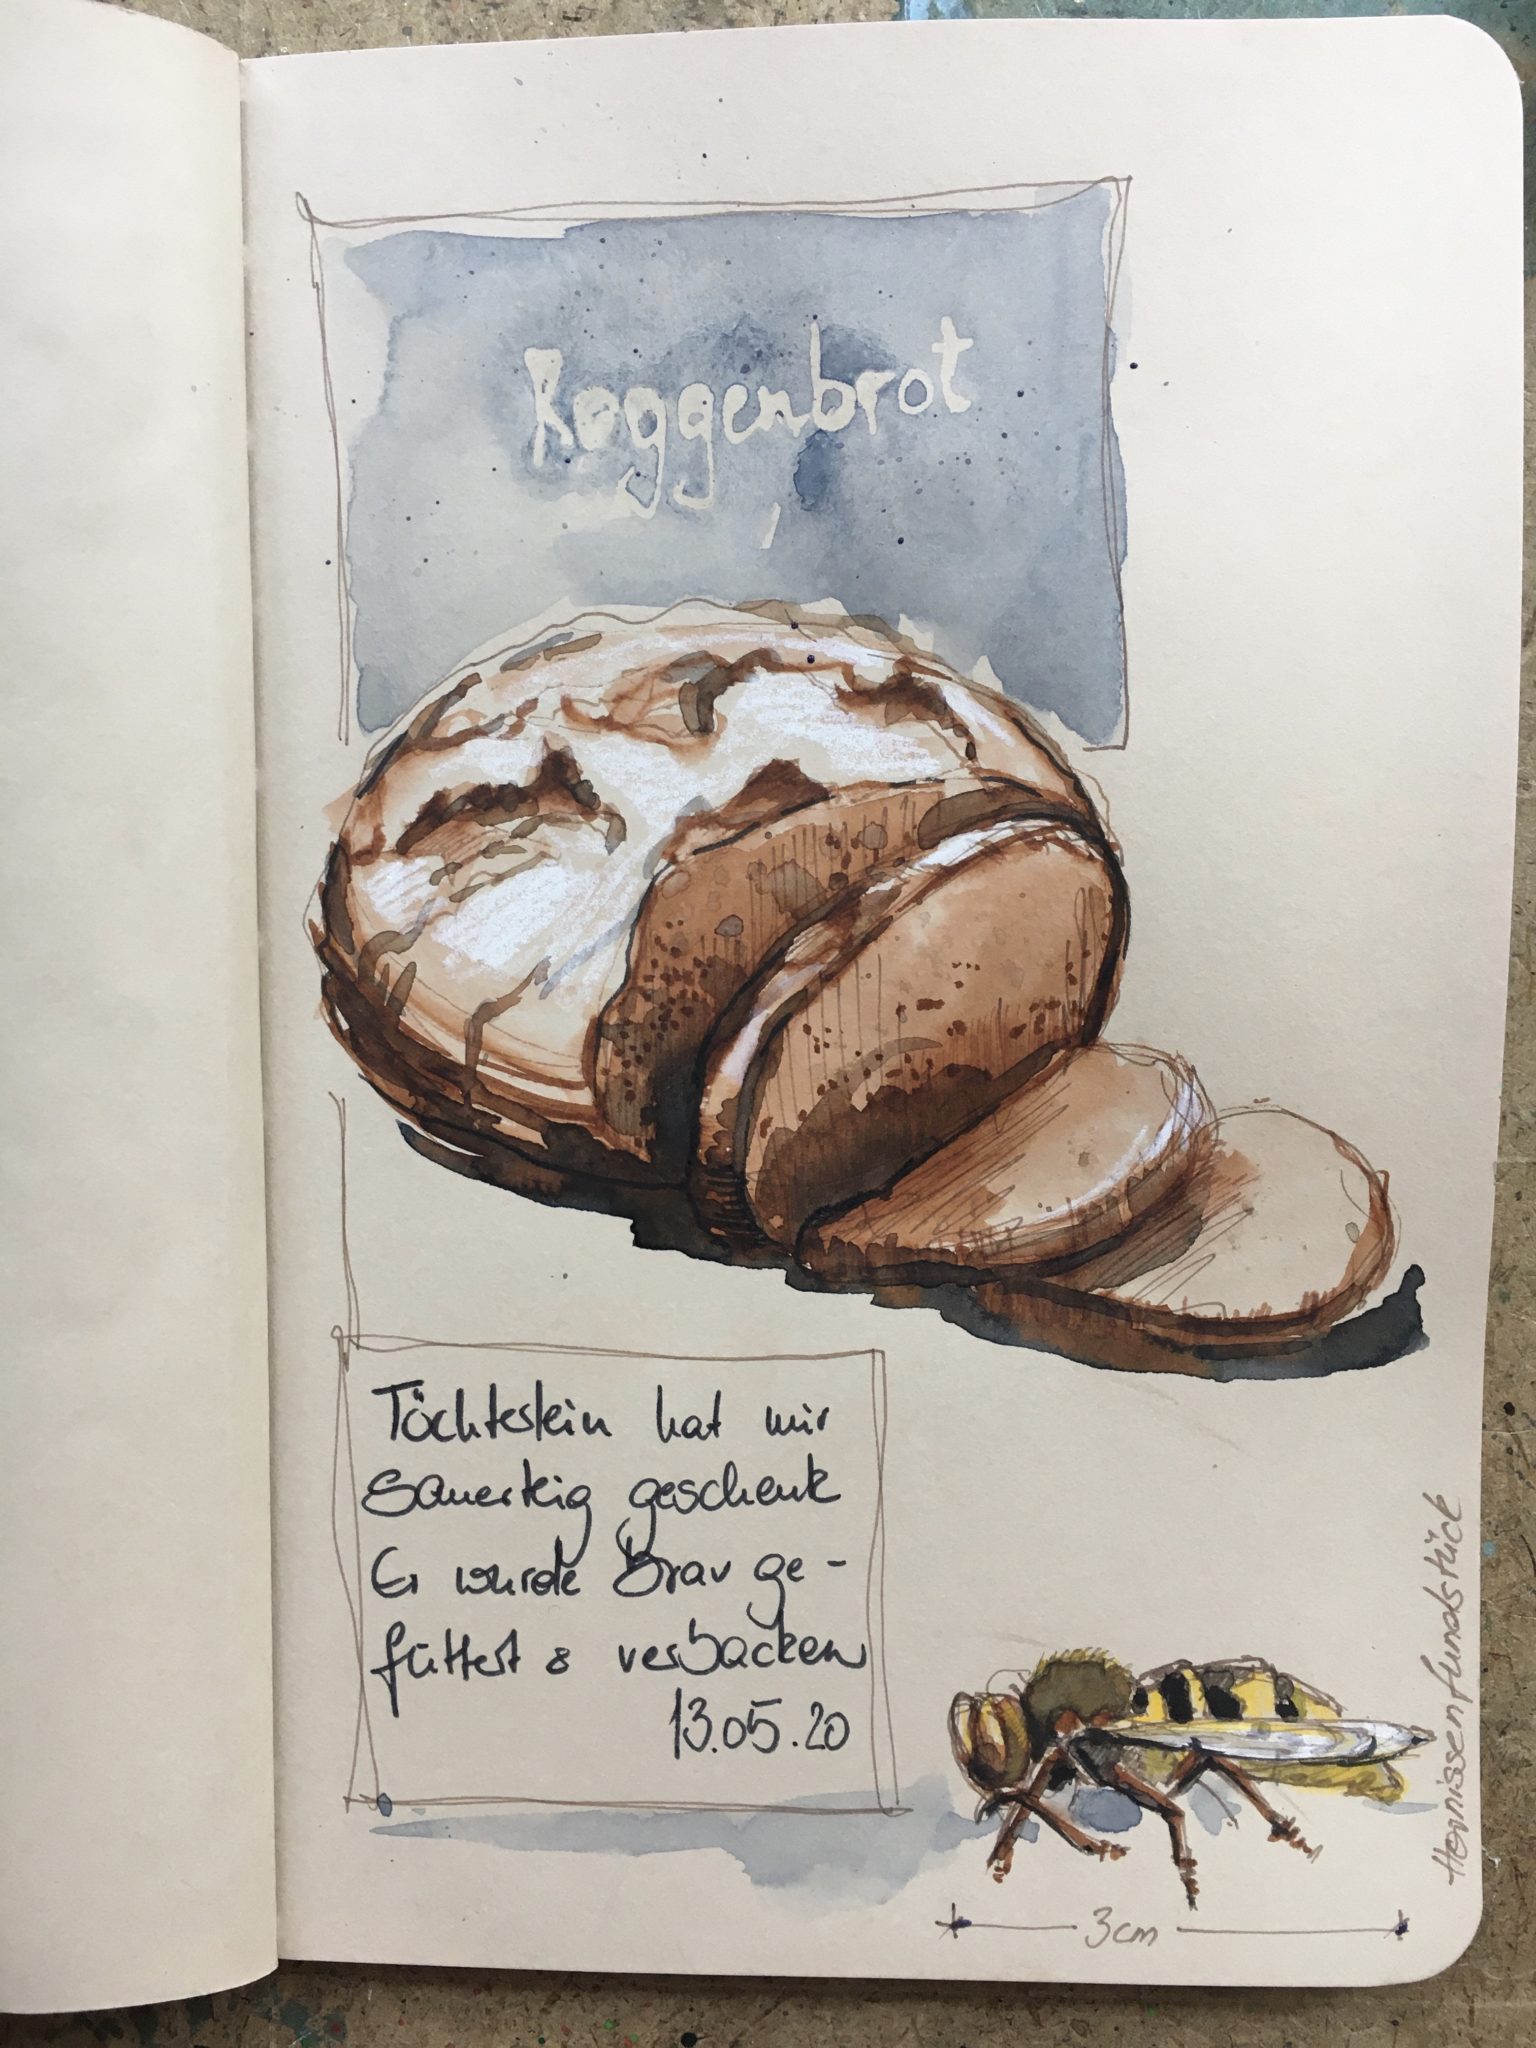 Roggenbrot
Töchterlein hat mir
Sauerteig geschenk
Er wurde Brav ge-
füttert & verbacken
13.05.20
3cm
Hornissenfundstück